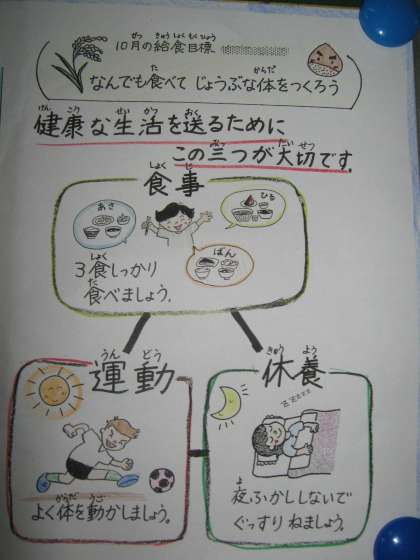 10月の給食目標
なんでも食べて じょうぶな体をつくろう
健康な生活を送るために
この三つが大切です。
食事
あさ
ひる
ばん
3食しっかり
食べましょう。
運動
よく体を動かしましょう。
休養
zzzzz
夜ふかししないで
ぐっすり ねましょう。